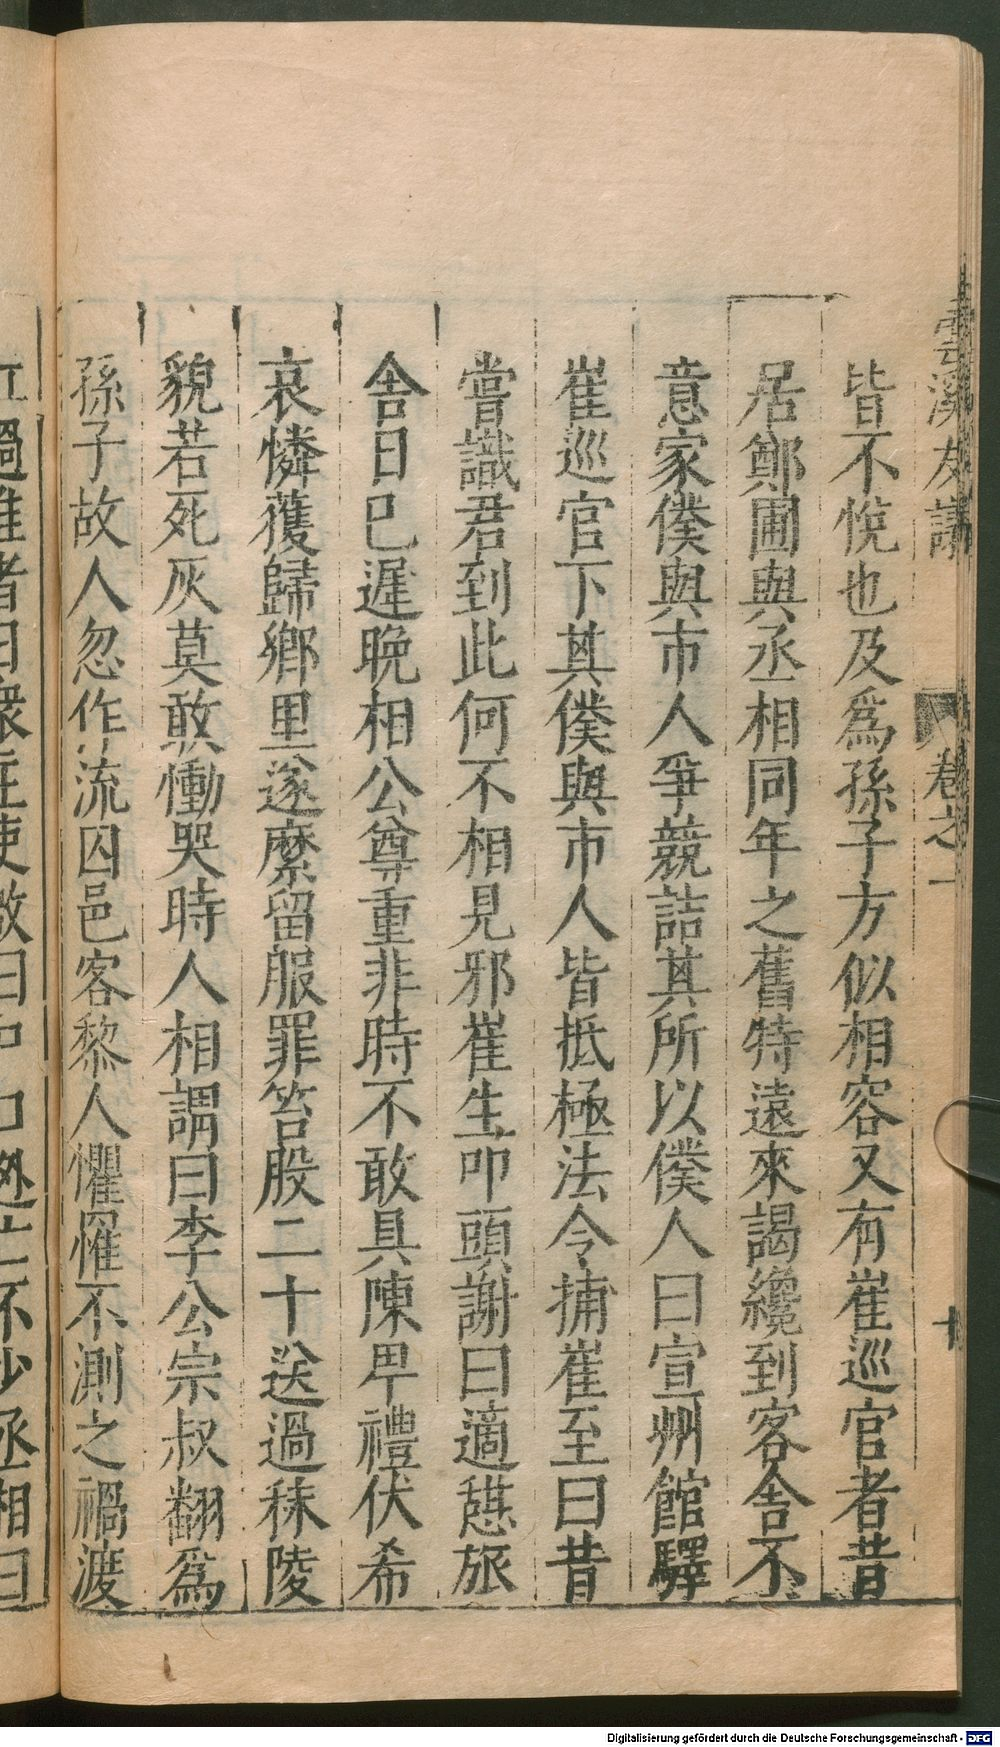 雲溪友議 卷之一 十
皆不悅也及爲孫子方似相容又有崔巡官者昔
居鄭圃與丞相同年之舊特遠來謁纔到客舍不
意家僕與市人爭競詰其所以僕人曰宣州館驛
崔巡官下其僕與市人皆抵極法令捕崔至曰昔
嘗識君到此何不相見邪崔生叩頭謝曰適憇旅
舍日已遲晚相公尊重非時不敢具陳甲禮伏希
哀憐獲歸鄉里遂縻留服罪笞股二十送過秣陵
貌若死灰莫敢慟哭時人相謂曰李公宗叔翻爲
孫子故人忽作流囚邑客黎人懼罹不測之禍渡
江過淮者
Digitalisierung gefördert durch die Deutsche Forschungsgemeinschaft - DFG